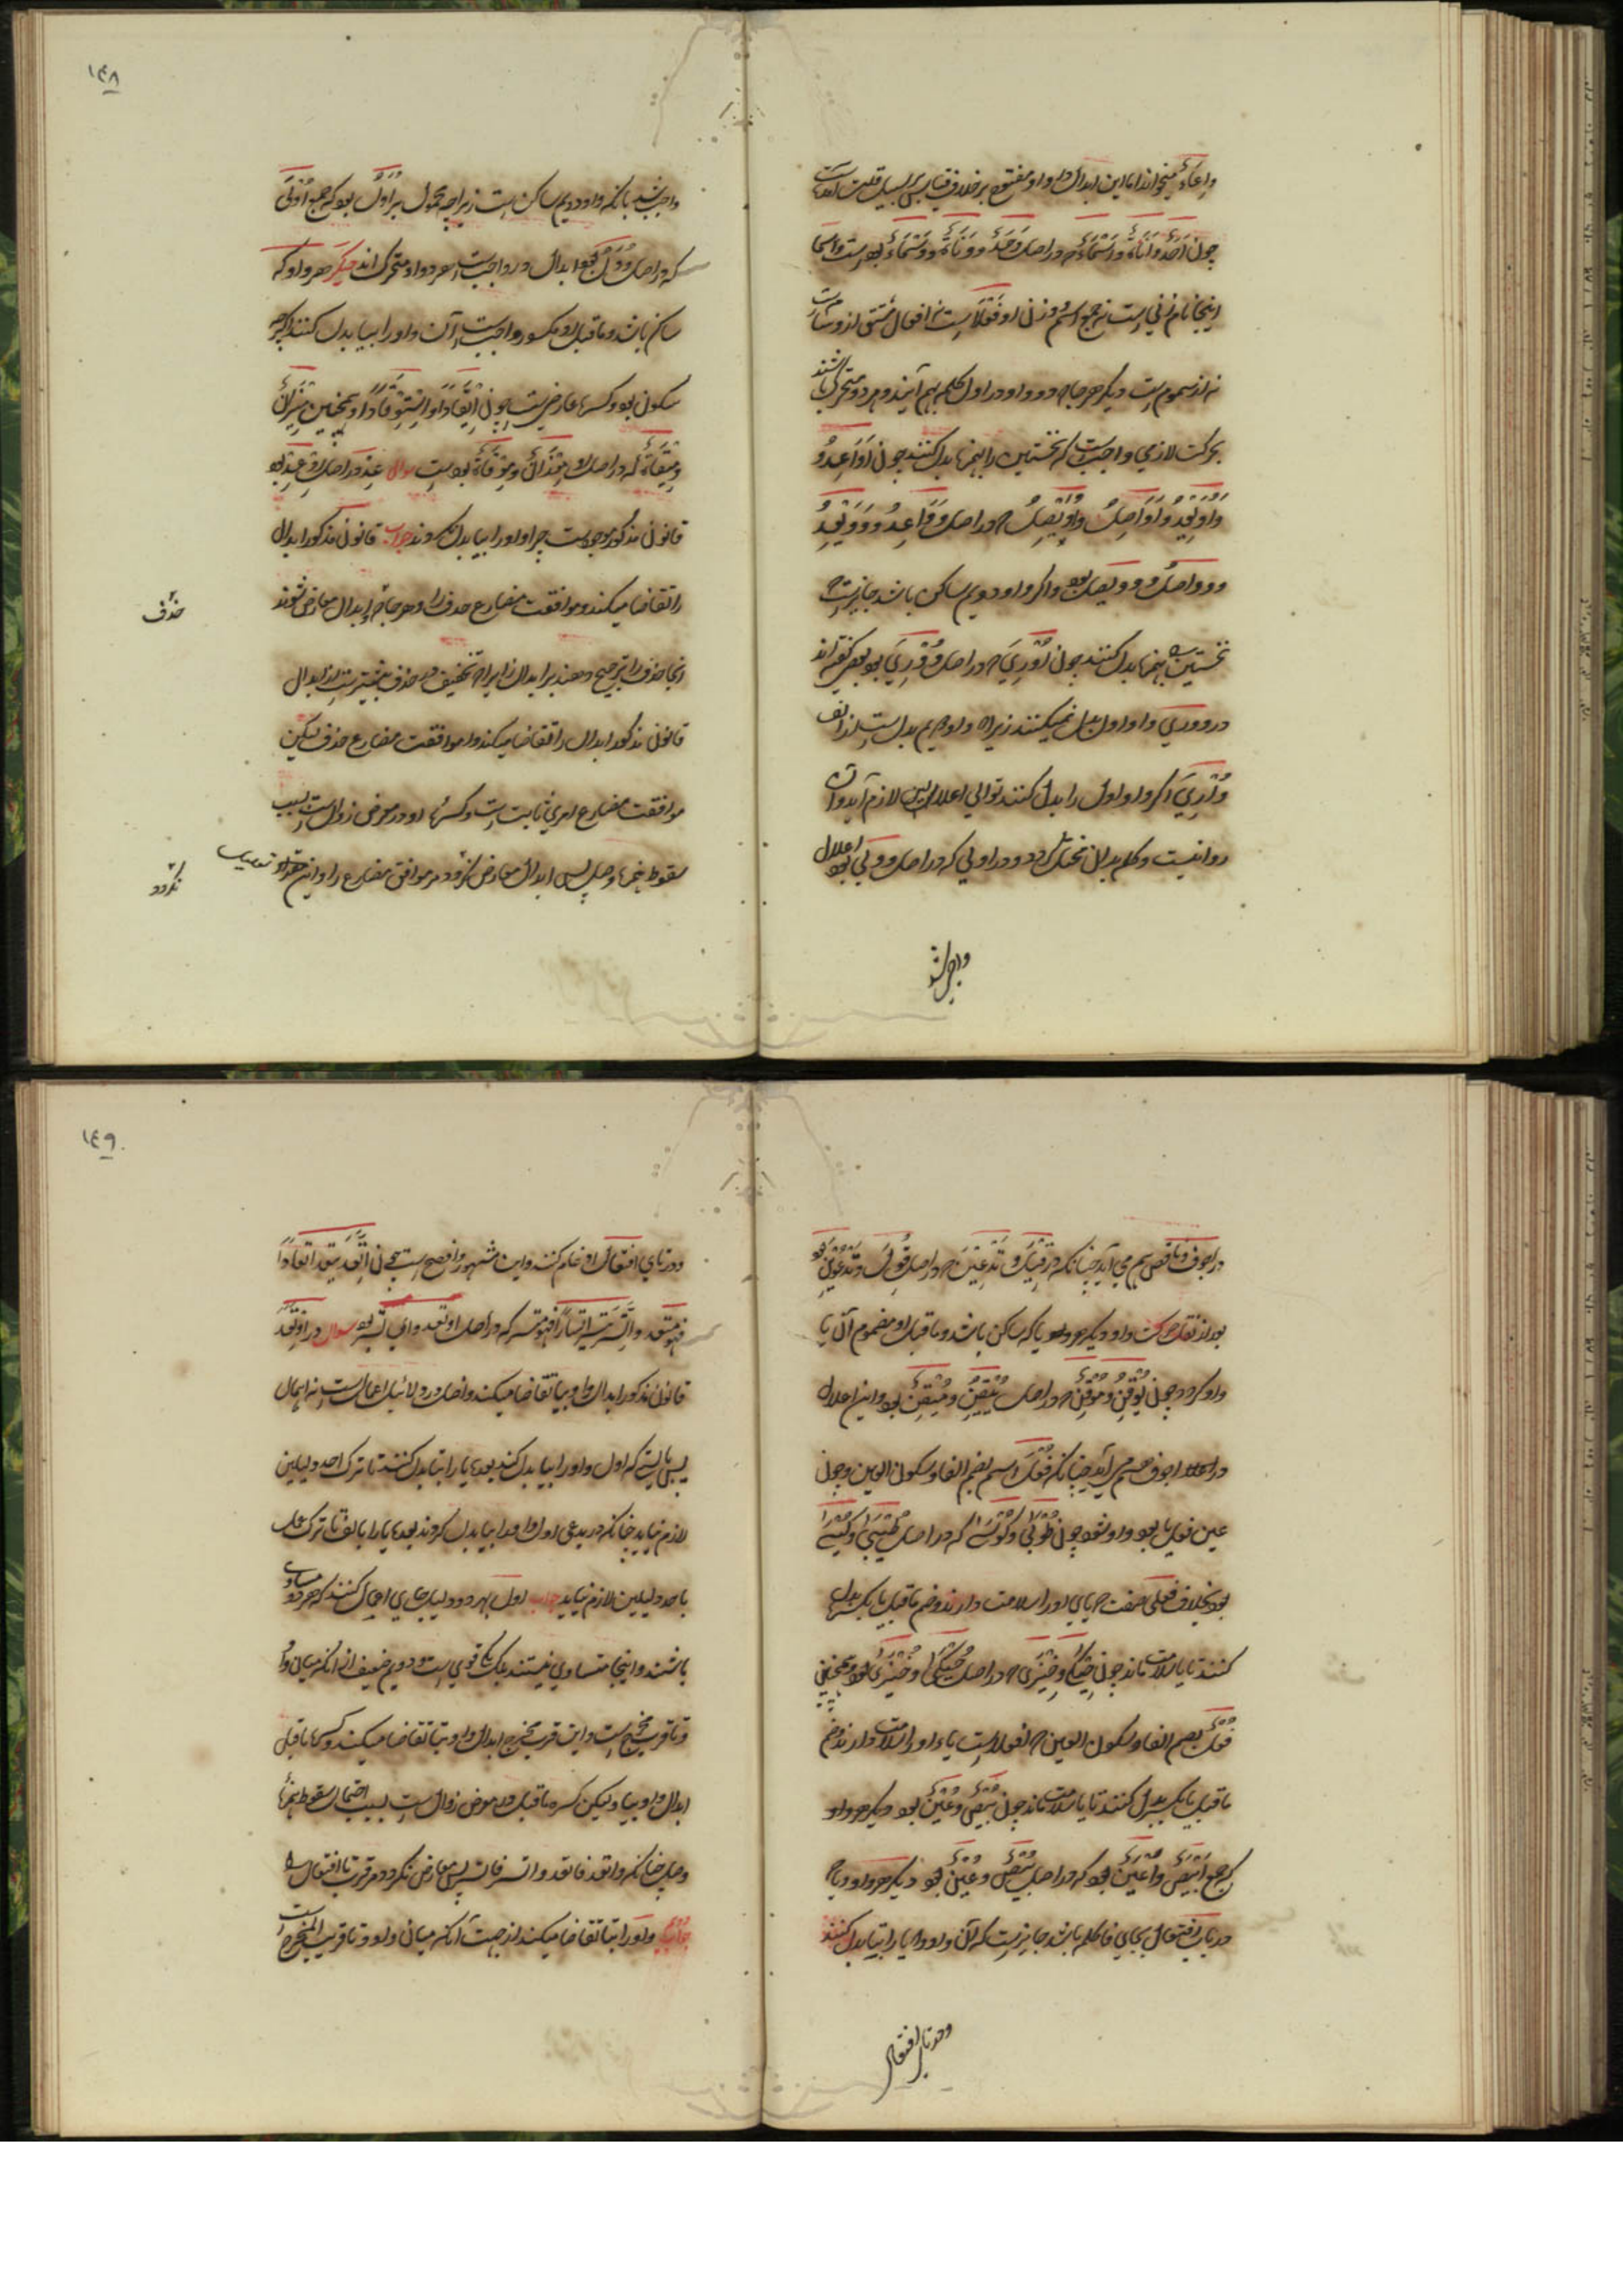 واعاء میخوانند اما این ابدال در واو مفتوح برخلاف قیاس بر سبیل قلت آمده است
چون احد و اناة و اسماء که در اصل وحد و وناة و وسماء بوده است و اسما
اینجا نام زنی است نه جمع اسم و وزن او فعلاست نه افعال مشتق از وسامت
نه از سمو است دیگر هرجا که دو واو در اول کلمه بهم آیند و هر دو متحرک باشند
بحرکت لازمی واجب است که نخستین را بهمزه بدل کنند چون اواعد و
و اویعد و اواصل و اویصل که در اصل وواعد و وویعد
و وواصل و وویصل بوده و اگر واو دویم ساکن باشد جایز است که
نخستین را بهمزه بدل کنند چون اوری که در اصل ووری بود بعضی گفته اند
در ووری واو اول بدل نمیکنند زیرا که واو دویم بدل است از الف
واری اگر واو اول را بدل کنند توالی اعلالین لازم آید و آن
روا نیست و کلام بدان مختل گردد و در اولی که در اصل وولی بود اعلال
واجب شد
١٤٨
واجب شد بآنکه واو دویم ساکن است زیرا چه محمول بر اول بود که جمع اولی
که در اصل وول بود ابدال درو واجب است هر دو واو متحرک اند دیگر هر واو که
ساکن باشد و ماقبل او مکسور واجب است آن واو را بیا بدل کنند اگرچه
سکون بود و کسره عارضی است چون ایتعادا و استیفادا و همچنین میزان
و میقاة که در اصل موزان و موقاة بوده است سوال عد در اصل اوعد بود
قانون مذکور موجود است چرا واو را بیا بدل نکردند جواب قانون مذکور ابدال
را تقاضا میکند و موافقت مضارع حذف را و هرجا که ابدال معارض شوند
حذف
انجا حذف را ترجیح دهند بر ابدال زیرا که تخفیف در حذف بیشتر است از ابدال
قانون مذکور ابدال را تقاضا میکند و موافقت مضارع حذف لیکن
موافقت مضارع امری ثابت است و کسره او در معرض زوال است بسبب
سقوط همزه وصل پس ابدال معارض نگردد مر موافق مضارع را و این
نگردد
در اجوف و ناقص هم می آید چنانکه در قیل و تدعین که در اصل قول و تدعوین بود
بعد از نقل حرکت واو دیگر هر یا که ساکن باشد و ماقبل او مضموم آن یا
واو گردد چون یوقن و موقن که در اصل ییقن و میقن بود و این اعلال
در اعلال اجوف هم می آید چنانکه فعلی اسم بضم الفا و سکون العین و چون
عین فعل یا بود واو شود چون طوبی و کوسی که در اصل طیبی و کیسی
بود بخلاف فعلی صفت که یای او را سلامت دارند و ضم ماقبل یا بکسره بدل
کنند تا یا سلامت ماند چون حیکی و ضیزی که در اصل حیکی و ضیزی بود و همچنین
فعل بضم الفا و سکون العین که جمع افعل است یاء او را سلامت دارند و ضم
ماقبل یا بکسره بدل کنند تا یا سلامت ماند چون بیض و عین بود دیگر هر واو
که جمع ابیض و اعین بود که در اصل بیض و عین بود دیگر هر واو و یا که
در باب افتعال بجای فا کلمه باشد جایز است که آن واو و یا را بتا بدل کنند
و در تای افتعال
١٤٩
و در تای افتعال ادغام کنند و این مشهور و افصح است چون اتعد یتعد اتعادا
فهو متعد و اتسر یتسر اتسارا فهو متسر که در اصل اوتعد و ایتسر بود سوال در اوتعد
قانون مذکور ابدال واو بیا تقاضا میکند و اصل در دلائل اعمال است نه اهمال
پس بایستی که اول واو را بیا بدل کنند بعده یا را بتا بدل کنند تا ترک احد دلیلین
لازم نیاید چنانکه در یدعی اول واو را بیا بدل کردند بعده یا را بالف تا ترک عمل
باحد دلیلین لازم نیاید جواب اول بهر دو دلیل جای اعمال کنند که هر دو مساوی
باشند و اینجا متساوی نیستند بلکه یکی قوی است و دویم ضعیف از آنکه میان واو
و تا قرب مخرج است و این قرب مخرج ابدال واو بتا تقاضا میکند و کسره ماقبل
ابدال واو بیا و لیکن کسره ماقبل در معرض زوال است بسبب احتمال سقوط همزه
وصل چنانکه واتعد فاتعد و اتسر فاتسر پس معارض نگردد مر قرب تا افتعال را
جواب واو را بتا تقاضا میکند از جهت آنکه میان واو و تا قریب المخرج است